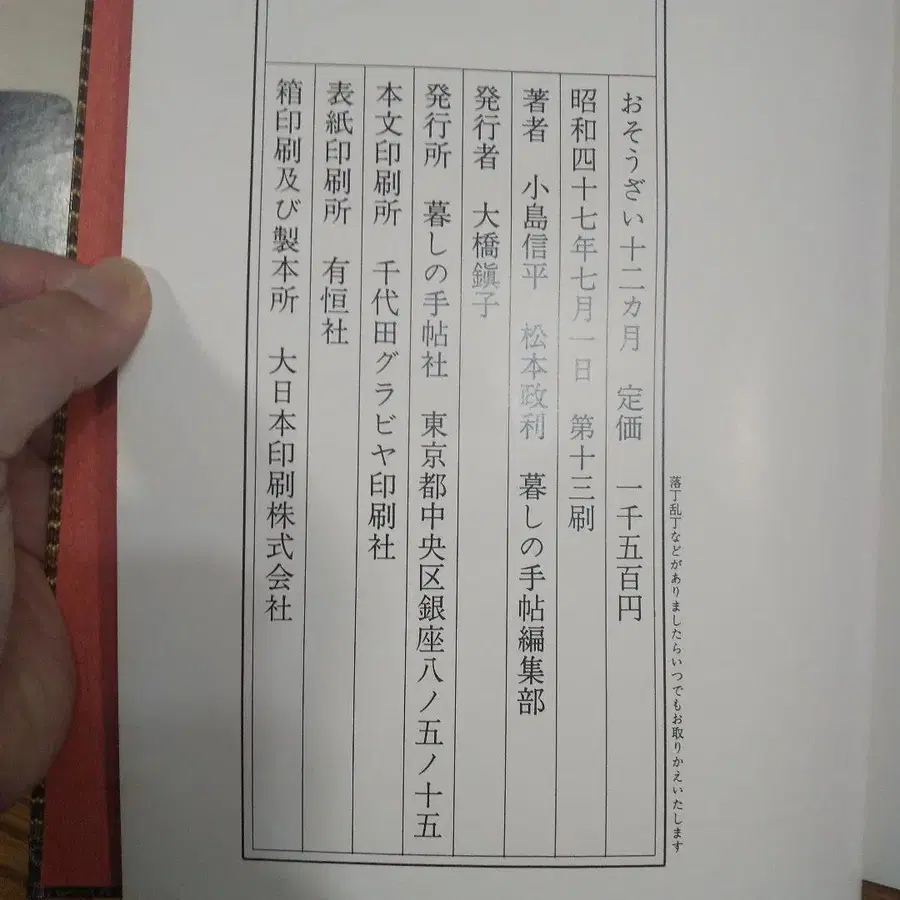 落丁乱丁などがありましたらいつでもお取りかえいたします
おそうざい十二カ月 定価 一千五百円
昭和四十七年七月一日 第十三刷
著者 小島信平 松本政利 暮しの手帖編集部
発行者 大橋鎭子
発行所 暮しの手帖社 東京都中央区銀座八ノ五ノ十五
本文印刷所 千代田グラビヤ印刷社
表紙印刷所 有恒社
箱印刷及び製本所 大日本印刷株式会社